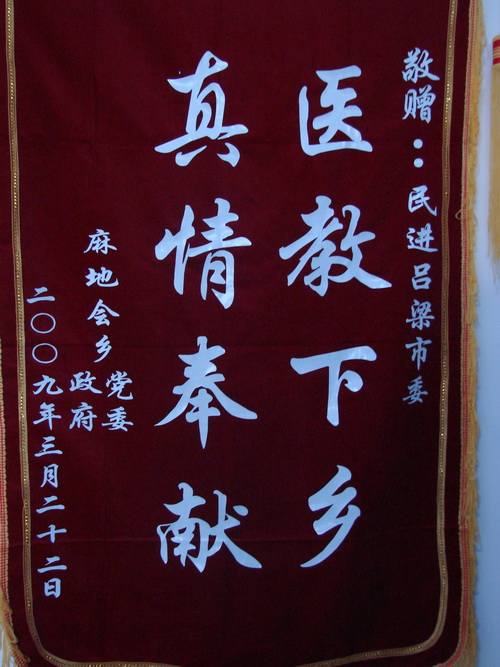 敬赠：民进吕梁市委
医教下乡
真情奉献
麻地会乡党委
政府
二〇〇九年三月二十二日